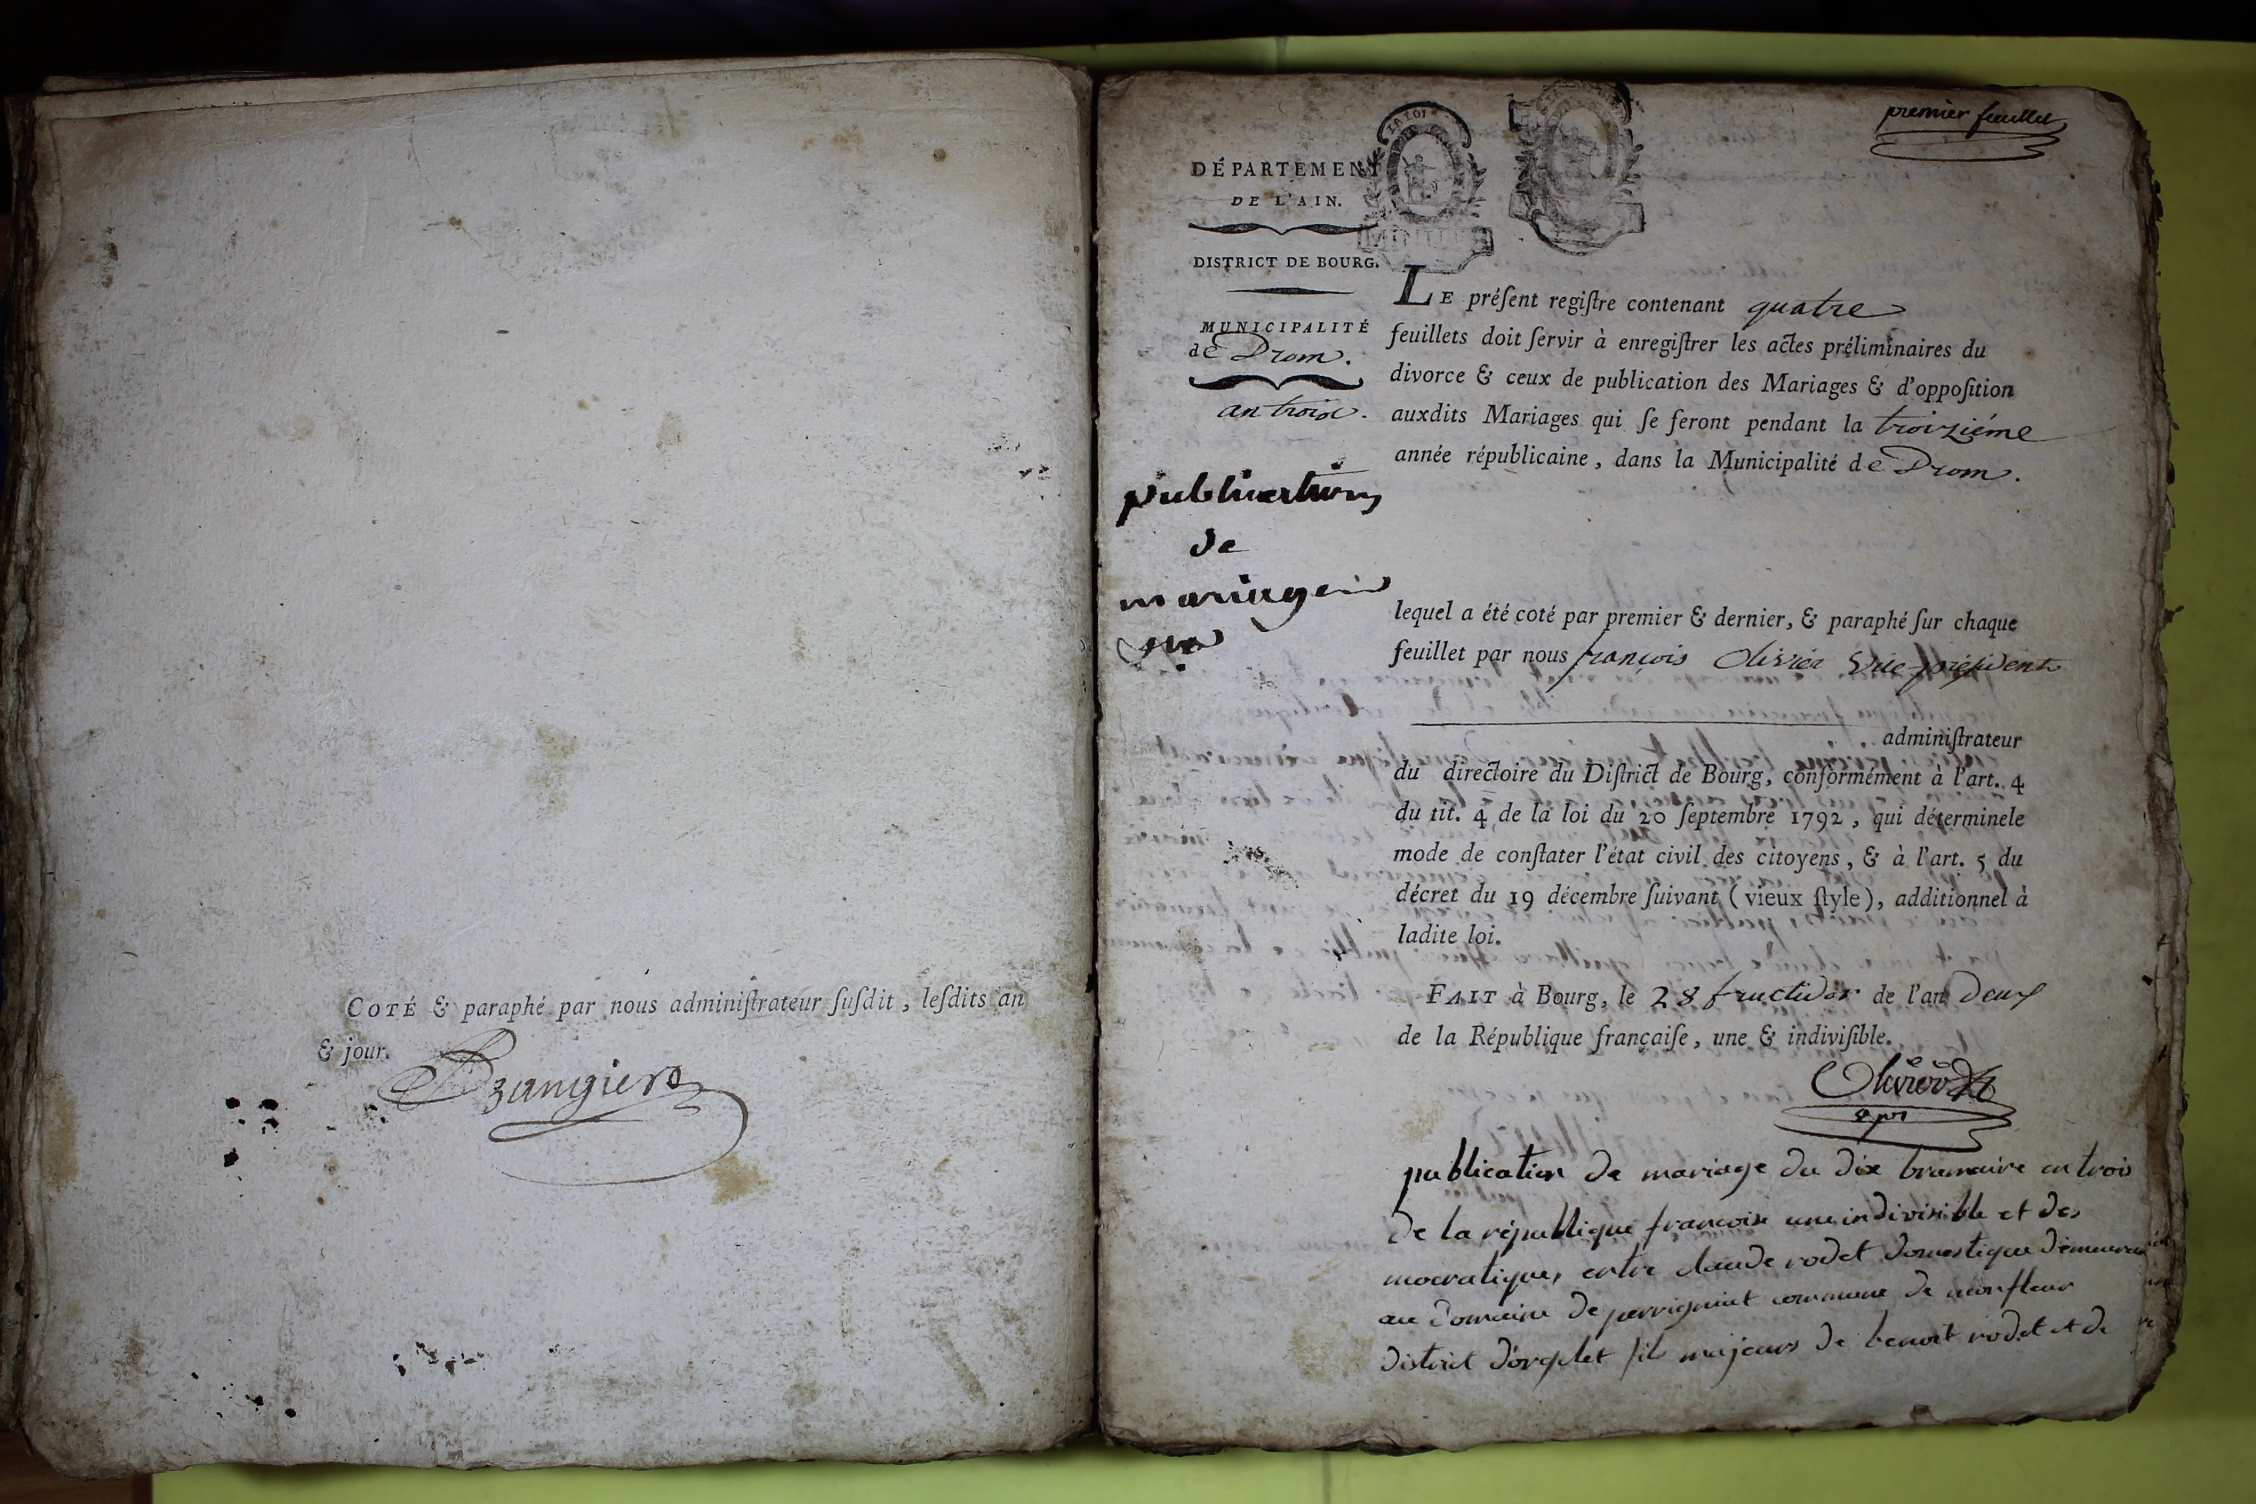 COTÉ & paraphé par nous adminiſtrateur ſuſdit, leſdits an
& jour.
premier feuillet
LA LOI
DÉPARTEMENT
DE L'AIN.
DISTRICT DE BOURG.
MUNICIPALITÉ
de Drom.
an trois.
publications
de
mariages
LE préſent regiſtre contenant quatre
feuillets doit ſervir à enregiſtrer les actes préliminaires du
divorce & ceux de publication des Mariages & d'oppoſition
auxdits Mariages qui ſe feront pendant la troiziéme
année républicaine, dans la Municipalité de Drom.
lequel a été coté par premier & dernier, & paraphé ſur chaque
feuillet par nous françois Olivier Vice-président
adminiſtrateur
du directoire du Diſtrict de Bourg, conformément à l'art. 4
du tit. 4 de la loi du 20 ſeptembre 1792, qui déterminele
mode de conſtater l'état civil des citoyens, & à l'art. 5 du
décret du 19 décembre ſuivant (vieux ſtyle), additionnel à
ladite loi.
FAIT à Bourg, le 28 fructidor de l'an deux
de la République françaiſe, une & indiviſible.
Olivier
publication de mariage du dix brumaire an trois
de la république francoise une indivisible et des
mocratique, entre claude rodet domestique demeurant
au domaine de perrigniat commune de monfleur
district d'orgelet fils majeurs de benoit rodet et de